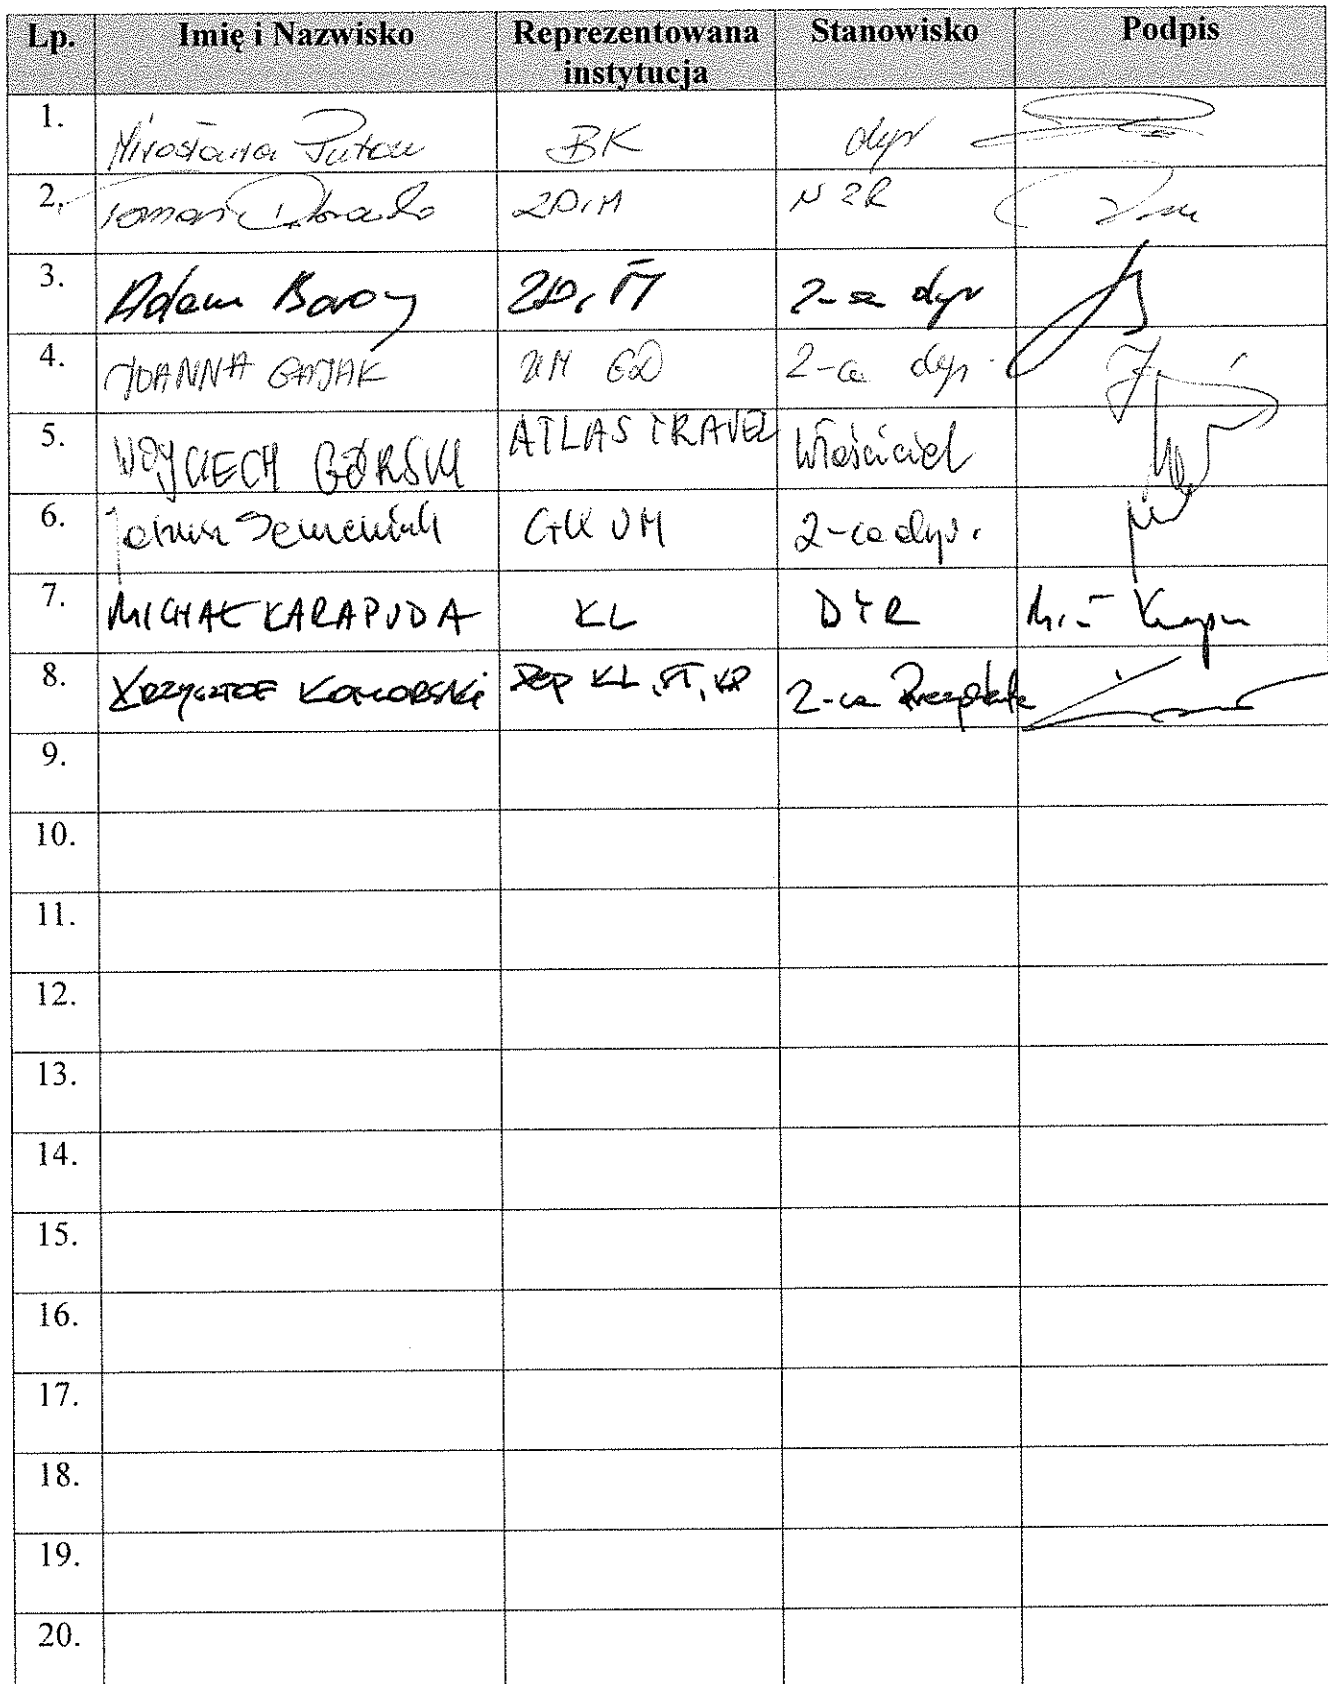 Lp. Imię i Nazwisko Reprezentowana instytucja Stanowisko Podpis
1. Mirosława BK dyr
2. Tomasz ZDiM NZR
3. Adam Barczy ZDiM Z-ca dyr
4. JOANNA GAJAK UM GD Z-ca dyr.
5. WOJCIECH GÓRSKI ATLAS TRAVEL Właściciel
6. Janusz Semeniuk GK UM Z-ca dyr.
7. MICHAŁ KARAPUDA KL DYR
8. KRZYSZTOF KOMORSKI Zep KL, ST, KP Z-ca Prezydenta
9.
10.
11.
12.
13.
14.
15.
16.
17.
18.
19.
20.